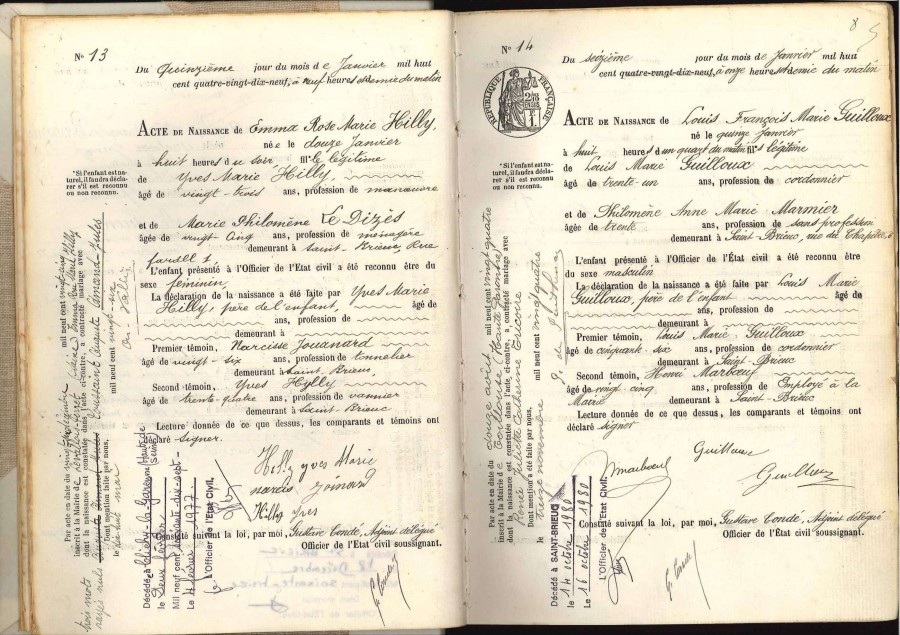 Nº 13
Du Quinzième jour du mois de Janvier mil huit
cent quatre-vingt-dix-neuf, à neuf heures et demie du matin
ACTE DE NAISSANCE de Emma Rose Marie Hilly,
née le douze Janvier
à huit heures du soir fille légitime
de Yves Marie Hilly,
âgé de vingt-trois ans, profession de manœuvre
et de Marie Philomène Le Dizès
âgée de vingt cinq ans, profession de ménagère
demeurant à Saint Brieuc, Rue
L'enfant présenté à l'Officier de l'Etat civil a été reconnu être du
sexe féminin,
La déclaration de la naissance a été faite par Yves Marie
Hilly, père de l'enfant, âgé de
ans, profession de
demeurant à
Premier témoin, Narcisse Jouanard
âgé de vingt-six ans, profession de tonnelier
demeurant à Saint Brieuc,
Second témoin, Yves Hylly
âgé de trente-quatre ans, profession de vannier
demeurant à Saint-Brieuc
Lecture donnée de ce que dessus, les comparants et témoins ont
déclaré signer.
Hilly yves Marie
Hilly Yves
Constaté suivant la loi, par moi, Gustave Condé, Adjoint délégué
Officier de l'Etat civil soussignant.
"Si l'enfant est na-
turel, il faudra décla-
rer s'il est reconnu
ou non reconnu.
Par acte en date du vingt
inscrit à la Mairie de
dont la naissance est constatée dans l'acte ci-contre, a contracté mariage avec
Toussaint Auguste Armand Jules
mil neuf cent vingt-un
Dont mention faite par nous,
le dix huit mai
trois mots
rayés nuls
Décédée à Clichy-la-Garenne
(Seine)
le deux février
Mil neuf cent soixante dix-sept
Le 4 février 1977
L'Officier de l'Etat Civil,
8
Nº 14
RÉPUBLIQUE FRANÇAISE
Du seizième jour du mois de Janvier mil huit
cent quatre-vingt-dix-neuf, à onze heures et demie du matin
ACTE DE NAISSANCE de Louis François Marie Guilloux
né le quinze janvier
à huit heures d'un quart du matin fils légitime
de Louis Marie Guilloux
âgé de trente-un ans, profession de cordonnier
et de Philomène Anne Marie Marmier
âgée de trente ans, profession de sans profession
demeurant à Saint-Brieuc, rue du Chapitre, 6
L'enfant présenté à l'Officier de l'État civil a été reconnu être
du sexe masculin
La déclaration de la naissance a été faite par Louis Marie
Guilloux, père de l'enfant âgé de
ans, profession de
demeurant à
Premier témoin, Louis Marie Guilloux
âgé de cinquante-six ans, profession de cordonnier
demeurant à Saint-Brieuc
Second témoin, Henri Marbœuf
âgé de vingt cinq ans, profession de Employé à la
Mairie demeurant à Saint-Brieuc
Lecture donnée de ce que dessus, les comparants et témoins ont
déclaré signer
Marbœuf
Guilloux
Guilloux
Constaté suivant la loi, par moi, Gustave Condé, Adjoint délégué
Officier de l'Etat civil soussignant.
"Si l'enfant est na-
turel, il faudra décla-
rer s'il est reconnu
ou non reconnu.
Par acte en date du douze août mil neuf cent vingt quatre
inscrit à la Mairie de Toulouse (Haute Garonne)
dont la naissance est constatée dans l'acte ci-contre, a contracté mariage avec
Renée Juliette Catherine Tricoire
Dont mention a été faite par nous,
treize novembre mil neuf cent vingt quatre
Décédé à SAINT-BRIEUC
le 14 octobre 1980
Le 16 octobre 1980
L'Officier de l'Etat Civil,